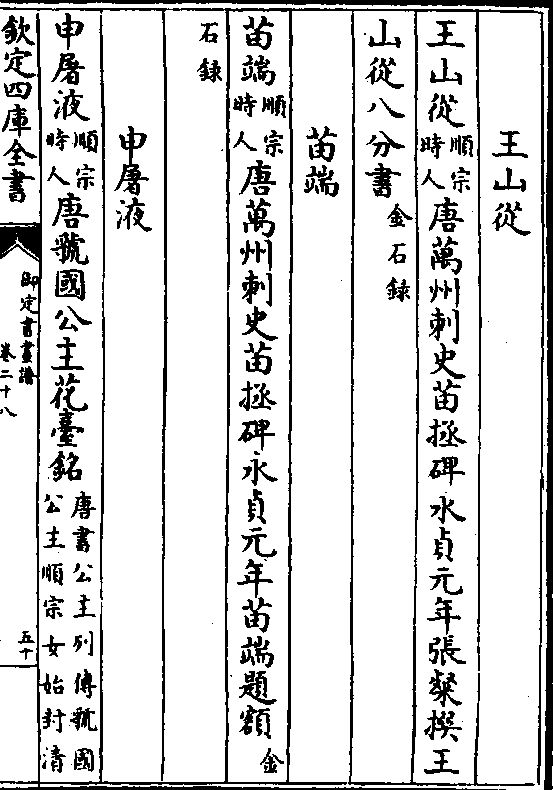 王山從
王山從順宗時人唐萬州刺史苗拯碑永貞元年張粲撰王
山從八分書金石録
苗端
苗端順宗時人唐萬州刺史苗拯碑永貞元年苗端題額金
石録
申屠液
申屠液順宗時人唐虢國公主花臺銘唐書公主列傳虢國公主順宗女始封清
欽定四庫全書
御定書畫譜
卷二十八
五十